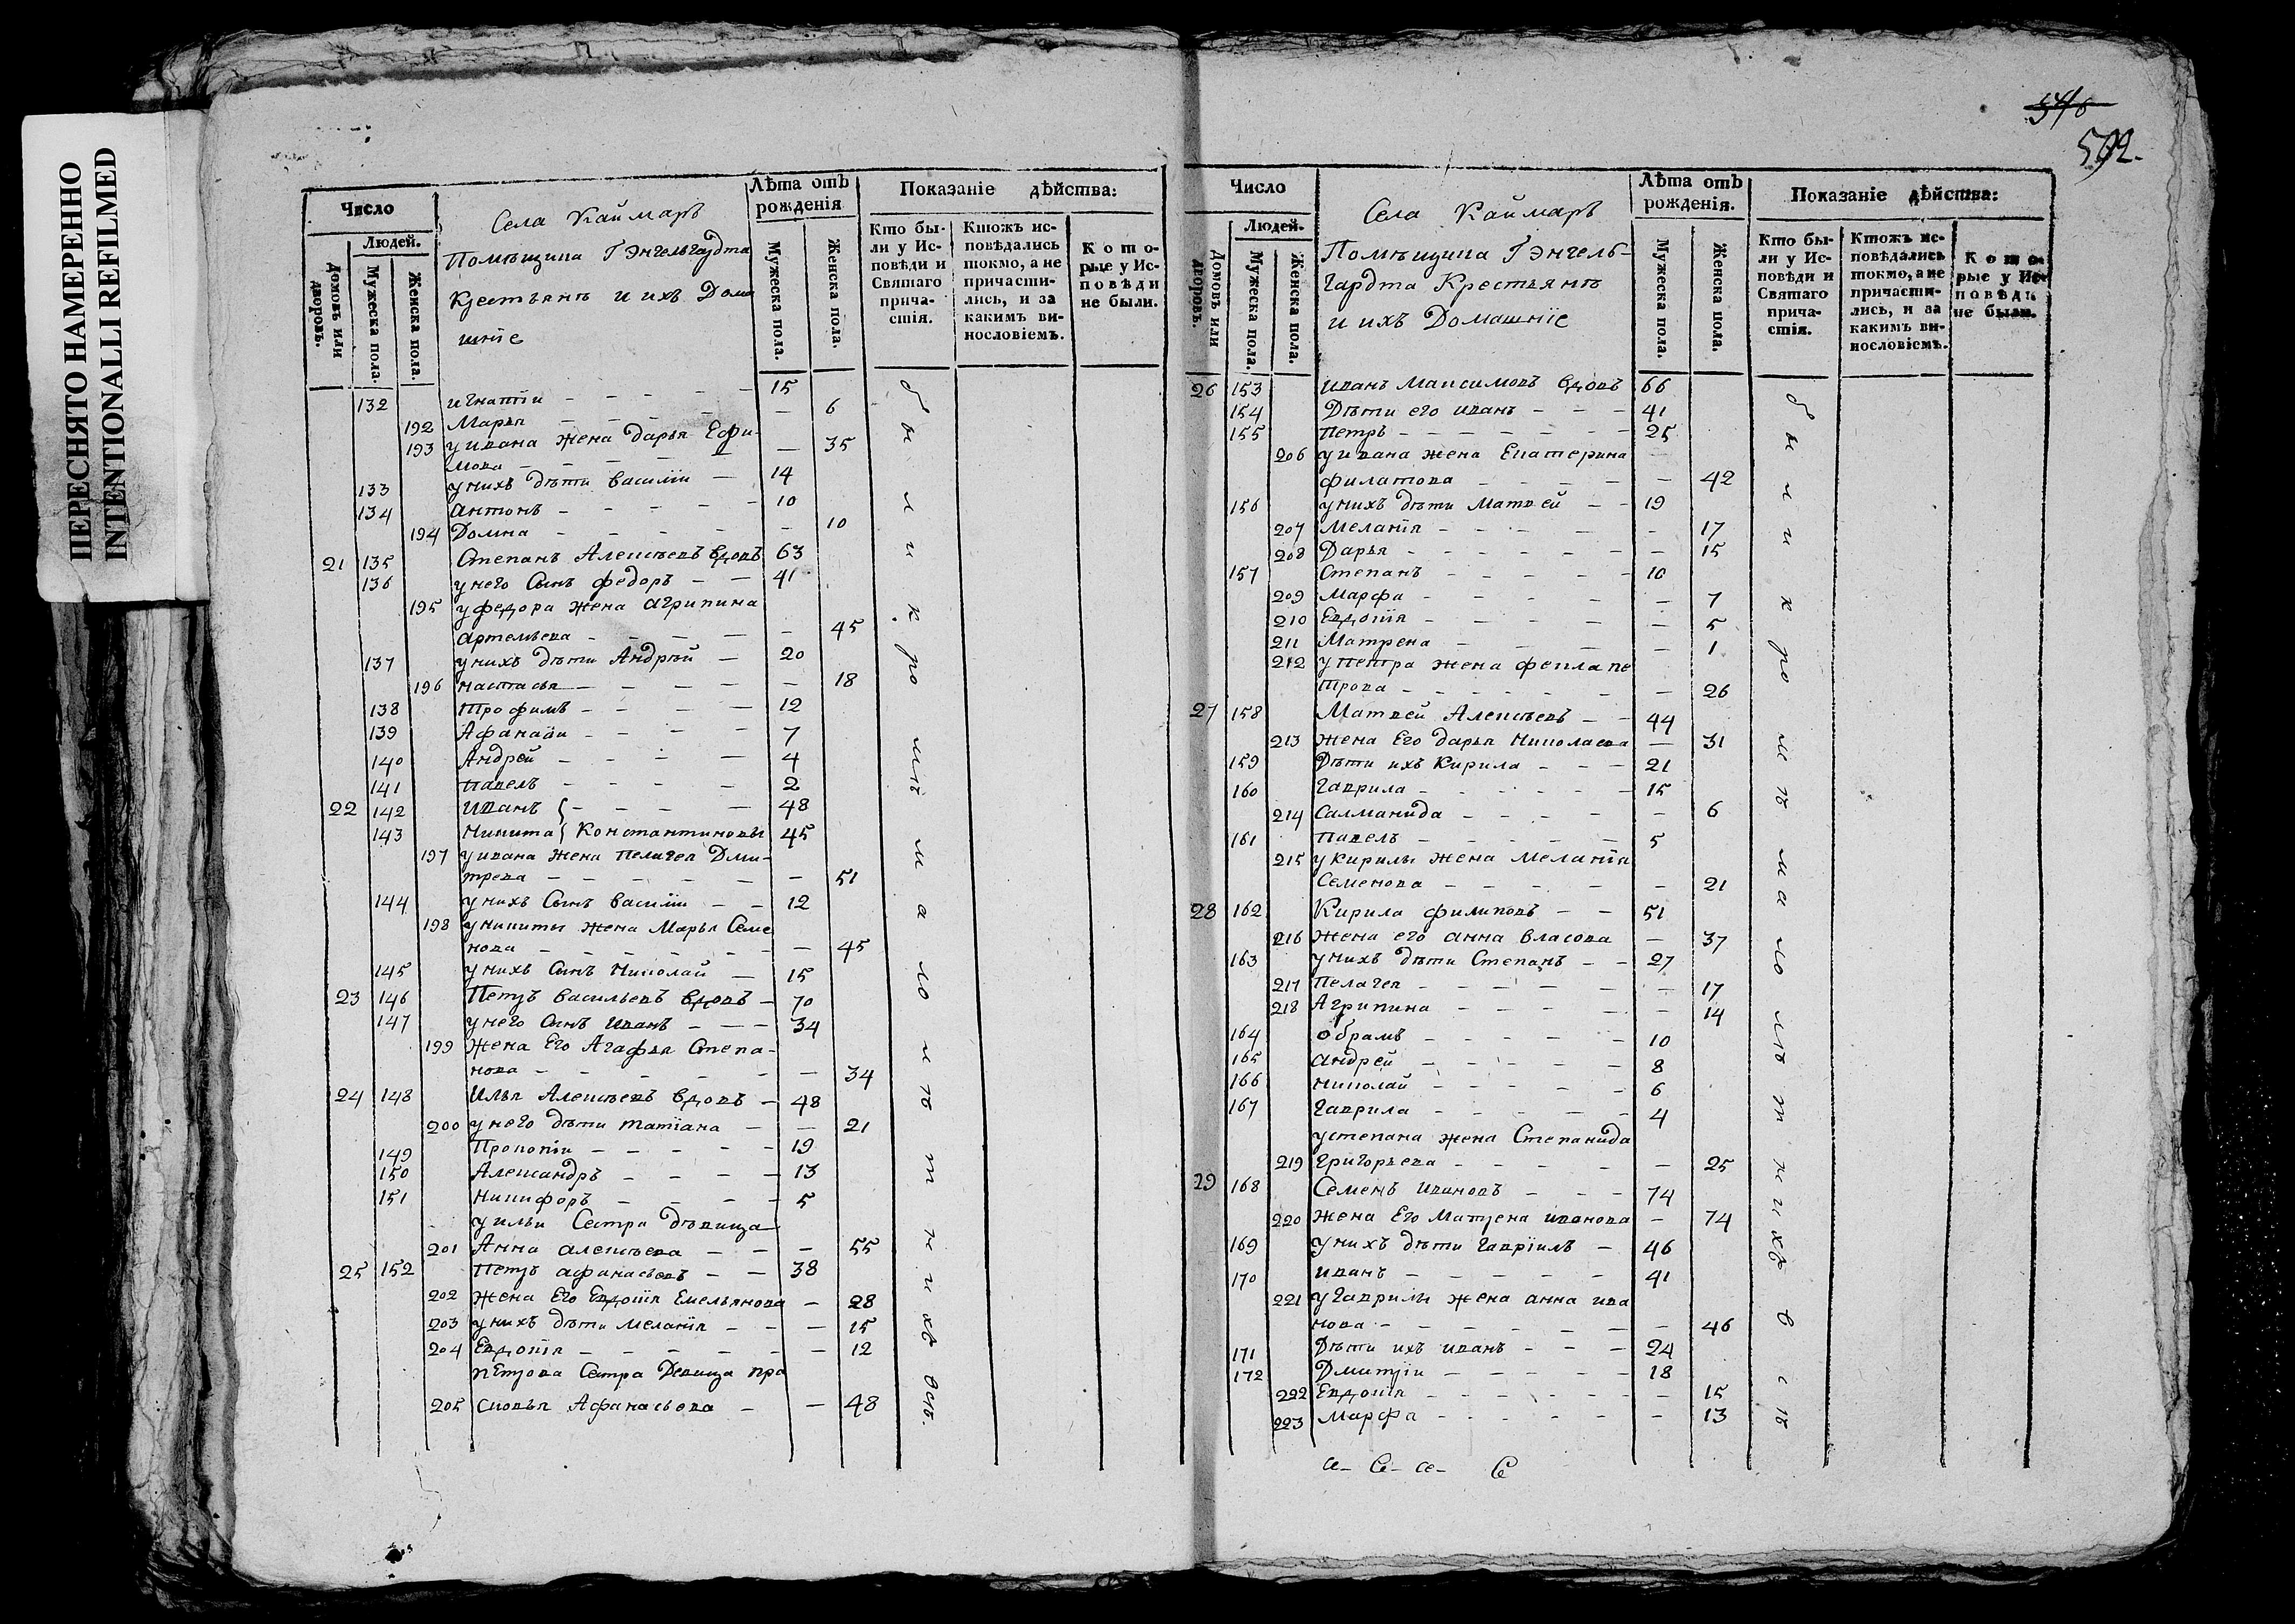 ПЕРЕСНЯТО НАМЕРЕННО
INTENTIONALLI REFILMED
592.
Число
Лѣта отъ рожденія
Показаніе дѣйства:
Людей.
Домовъ или дворовъ.
Мужеска пола.
Женска пола.
Села Каймаръ
Помѣщика Г Энгельгардта
Крестьянъ и ихъ Дома
шніе
Мужеска пола.
Женска пола.
Кто были у Исповѣди и Святаго причастія.
Ктожъ исповѣдались токмо, а не причастились, и за какимъ винословіемъ.
Которые у Исповѣди не были.
132 игнатіи - - - - 15
192 Марья - - - - - 6
193 у ивана жена дарья Ефи-
мова - - - - - 35
133 у нихъ дѣти василіи - 14
134 антонъ - - - - - 10
194 Домна - - - - - 10
21 135 Степанъ Алексѣевъ вдовъ 63
136 у него Сынъ федоръ - - 41
195 у федора жена агрипина
артемьева - - - - - 45
137 у нихъ дѣти Андрѣй - 20
196 настасья - - - - - 18
138 трофимъ - - - - 12
139 Афанасіи - - - - 7
140 Андрей - - - - 4
141 павелъ - - - - 2
22 142 Иванъ } - - - - 48
143 Никита } Константиновы 45
197 у ивана жена пелагея Дми-
трева - - - - - - 51
144 у нихъ Сынъ василіи - - 12
198 у никиты жена Марья Семе
нова - - - - - - 45
145 у нихъ Сынъ Николай - 15
23 146 Петръ васильевъ вдовъ - 70
147 у него Сынъ Иванъ - - - 34
199 жена Его Агафья Степа-
нова - - - - - - 34
24 148 Илья Алексѣевъ вдовъ - 48
200 у него дѣти татіана - - 21
149 Прокопіи - - - - - 19
150 Александръ - - - - 13
151 Никифоръ - - - - 5
у ильи Сестра дѣвица
201 Анна алексѣева - - - 55
25 152 Петръ афанасьевъ - - 38
202 жена Его Евдокія Емельянова - 28
203 у нихъ дѣти меланія - - - 15
204 Евдокія - - - - - - 12
петрова Сестра Девица пра
205 сковья Афанасьева - - 48
были и к ро мѣ м а ло лѣ т н и хъ всѣ.
Число
Лѣта отъ рожденія.
Показаніе дѣйства:
Людей.
Домовъ или дворовъ.
Мужеска пола.
Женска пола.
Села Каймаръ
Помѣщика Г Энгель-
гардта Крестьянъ
и ихъ Домашніе
Мужеска пола.
Женска пола.
Кто были у Исповѣди и Святаго причастія.
Ктожъ исповѣдались токмо, а не причастились, и за какимъ винословіемъ.
Которые у Исповѣди не были.
26 153 иванъ Максимовъ вдовъ 66
154 Дѣти его иванъ - - - 41
155 петръ - - - - - - 25
206 у ивана жена Екатерина
филатова - - - - - 42
156 у нихъ дѣти Матвей - - 19
207 меланія - - - - - 17
208 Дарья - - - - - - - 15
157 Степанъ - - - - - 10
209 Марфа - - - - - 7
210 Евдокія - - - - - 5
211 Матрена - - - - - 1
212 у петра жена фекла пе
трова - - - - - - - 26
27 158 Матвей Алексѣевъ - - 44
213 жена Его дарья Николаева - 31
159 Дѣти ихъ Кирила - - - 21
160 гаврила - - - - - - 15
214 Салманида - - - - - 6
161 павелъ - - - - - 5
215 у кирилы жена меланія
Семенова - - - - - 21
28 162 Кирила филиповъ - - 51
216 жена его анна власова - 37
163 у нихъ дѣти Степанъ - - 27
217 Пелагея - - - - - - 17
218 Агрипина - - - - - 14
164 обрамъ - - - - - 10
165 андрей - - - - - 8
166 николай - - - - - 6
167 гаврила - - - - - 4
у степана жена Степанида
219 григорьева - - - - - 25
29 168 Семенъ Ивановъ - - - 74
220 жена Его Матрена иванова - 74
169 у нихъ дѣти гавріилъ - 46
170 иванъ - - - - - - 41
221 у гаврилы жена анна ива
нова - - - - - - - 46
171 Дѣти ихъ иванъ - - - 24
172 Дмитріи - - - - - 18
222 Евдокія - - - - - - - 15
223 марфа - - - - - - 13
были и к ро м ѣ м а ло лѣ т н и хъ в с ѣ